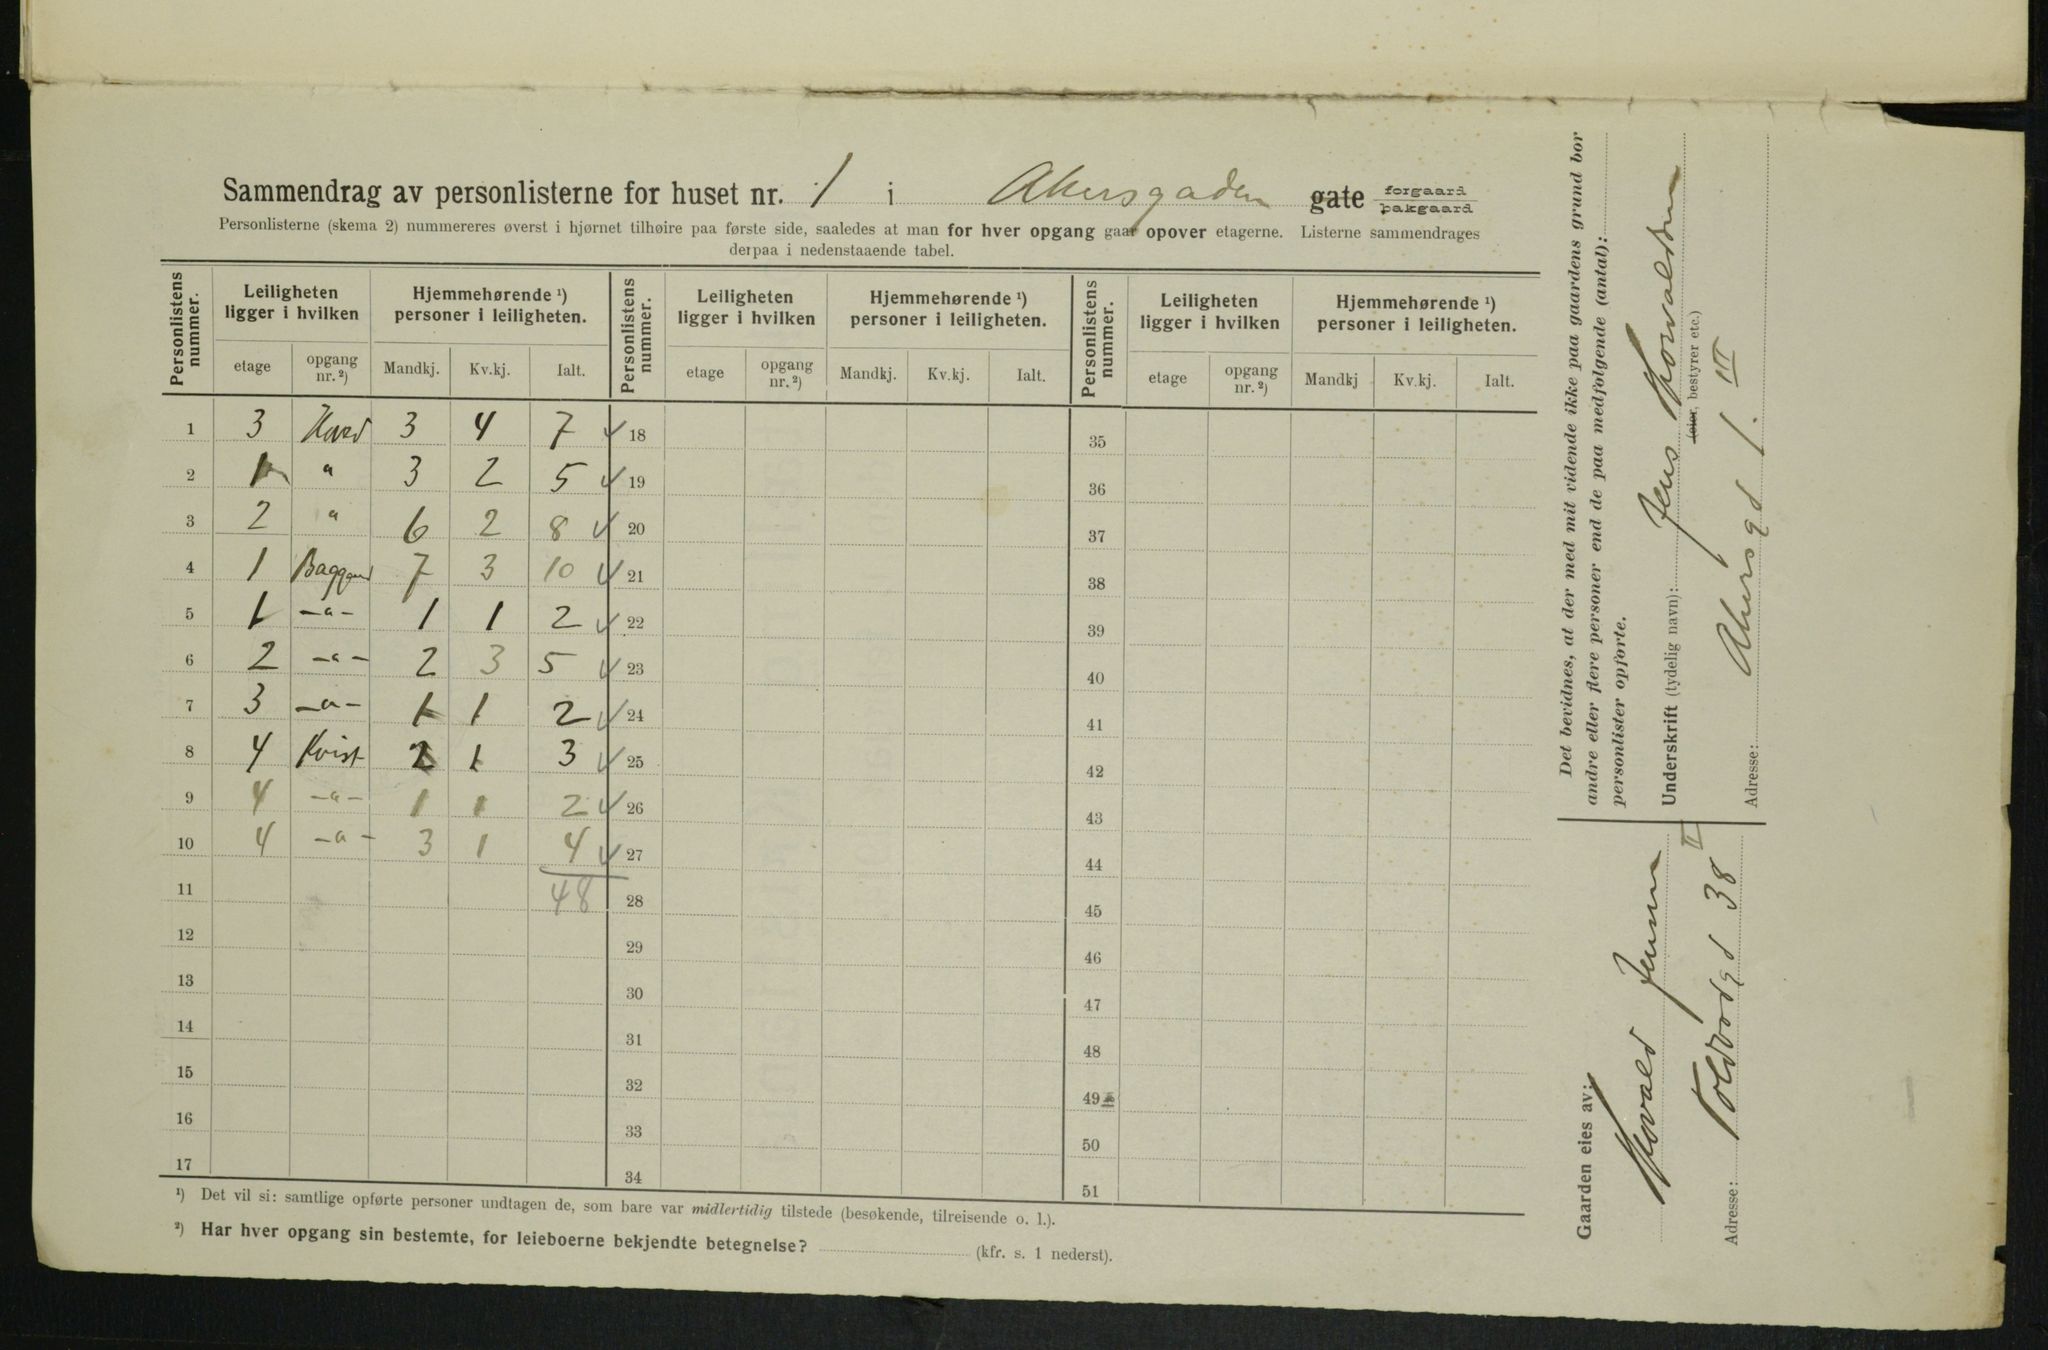 Sammendrag av personlisterne for huset nr. 1 i Akersgaden gate forgaard
bakgaard
Personlisterne (skema 2) nummereres øverst i hjørnet tilhøire paa første side, saaledes at man for hver opgang gaar opover etagerne. Listerne sammendrages
derpaa i nedenstaaende tabel.
Personlistens nummer. Leiligheten ligger i hvilken Hjemmehørende ¹) personer i leiligheten. Personlistens nummer. Leiligheten ligger i hvilken Hjemmehørende ¹) personer i leiligheten. Personlistens nummer. Leiligheten ligger i hvilken Hjemmehørende ¹) personer i leiligheten.
etage opgang nr. ²) Mandkj. Kv.kj. Ialt. etage opgang nr. ²) Mandkj. Kv.kj. Ialt. etage opgang nr. ²) Mandkj Kv.kj. Ialt.
1 3 Hoved 3 4 7 ✓ 18 35
2 1 " 3 2 5 ✓ 19 36
3 2 " 6 2 8 ✓ 20 37
4 1 Baggaard 7 3 10 ✓ 21 38
5 1 -"- 1 1 2 ✓ 22 39
6 2 -"- 2 3 5 ✓ 23 40
7 3 -"- 1 1 2 ✓ 24 41
8 4 Kvist 2 1 3 ✓ 25 42
9 4 -"- 1 1 2 ✓ 26 43
10 4 -"- 3 1 4 ✓ 27 44
11 48 28 45
12 29 46
13 30 47
14 31 48
15 32 49
16 33 50
17 34 51
¹) Det vil si: samtlige opførte personer undtagen de, som bare var midlertidig tilstede (besøkende, tilreisende o. l.).
²) Har hver opgang sin bestemte, for leieboerne bekjendte betegnelse? (kfr. s. 1 nederst).
Det bevidnes, at der med mit vidende ikke paa gaardens grund bor
andre eller flere personer end de paa medfølgende (antal):
personlister opførte.
Underskrift (tydelig navn): Jens Thorvaldsen
(eier, bestyrer etc.)
Adresse: Akersgd 1. III
Gaarden eies av:
Thorvald Jensen
Adresse: Toldbodgd 38 II